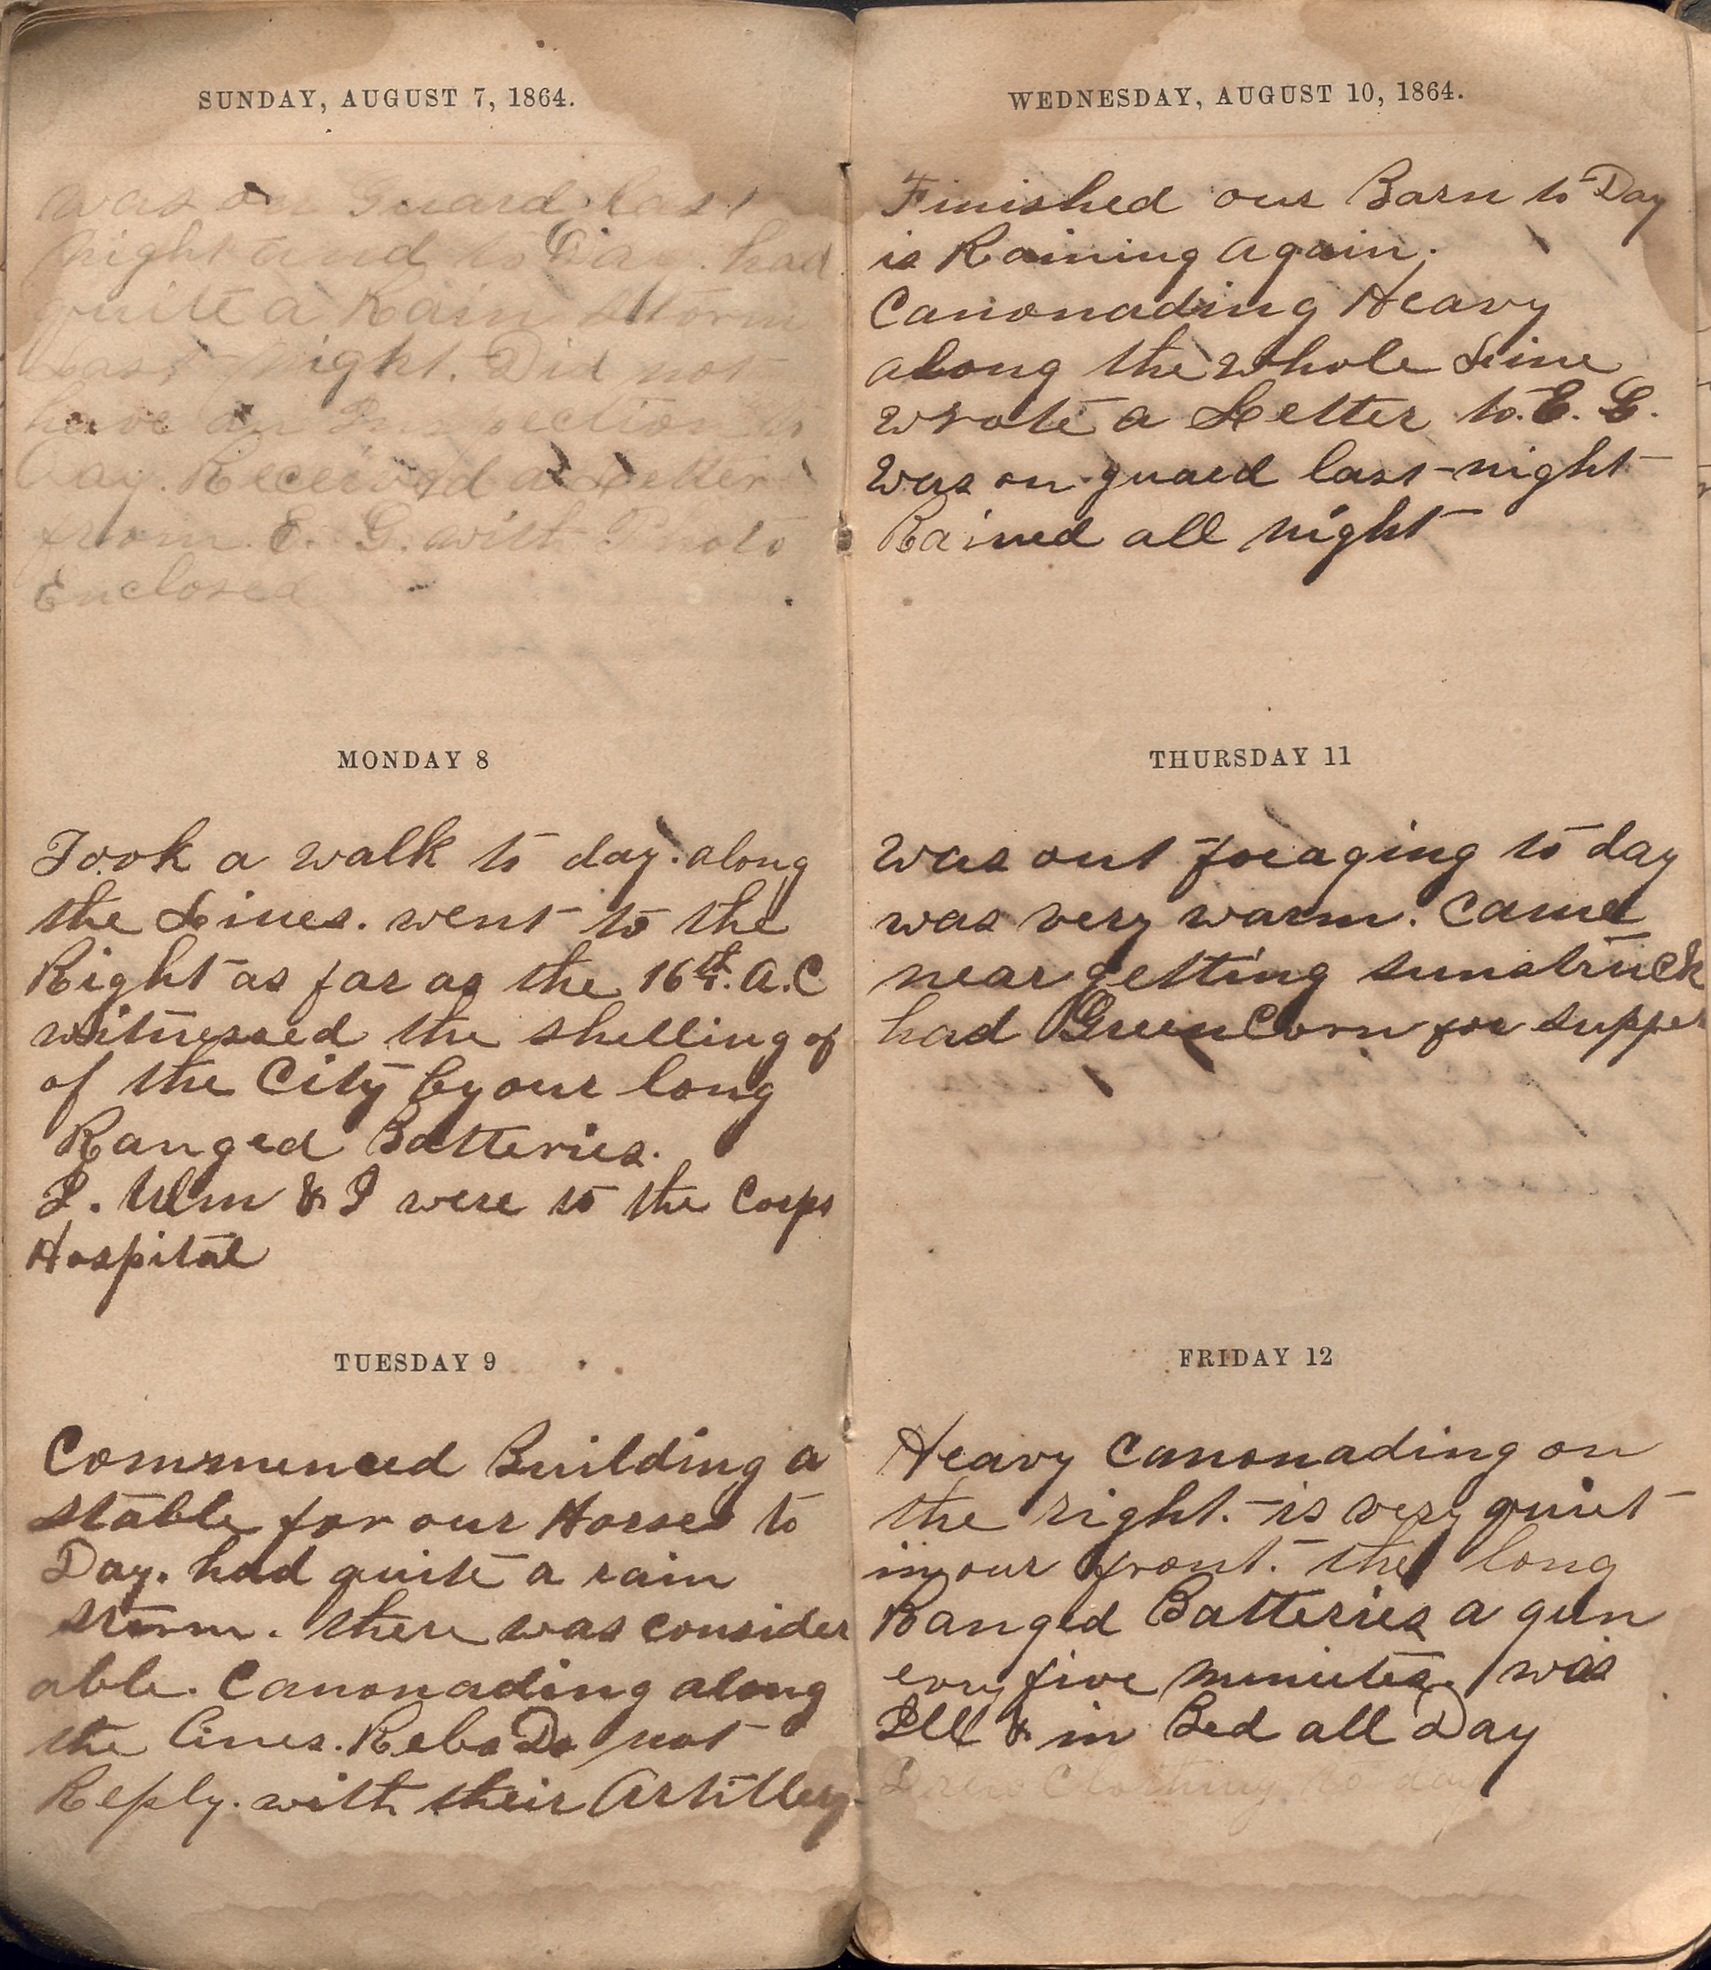 SUNDAY, AUGUST 7, 1864.
Was on Guard last
night and to Day. had
quite a Rain Storm
Last Night. Did not
have an Inspection to
Day. Received a Letter
from E. G. with Photo
Enclosed
MONDAY 8
Took a walk to day. along
the Lines. went to the
Right as far as the 16th. A.C
witnessed the shelling of
of the City by our long
Ranged Batteries.
L. Ulm & I were to the Corps
Hospital
TUESDAY 9
Commenced Building a
stable for our Horses to
Day. had quite a rain
storm. there was consider
able. Canonading along
the lines. Rebs Do not
Reply. with their Artillery
WEDNESDAY, AUGUST 10, 1864.
Finished our Barn to Day
is Raining Again.
Canonading Heavy
along the whole Line
wrote a Letter to. E. G.
Was on guard last night
Rained all night
THURSDAY 11
Was out foraging to day
was very warm. Came
near getting sunstruck
had Green Corn for supper
FRIDAY 12
Heavy Canonading on
the right. is very quiet
in our front. the long
Ranged Batteries a gun
evry five minutes. was
Ill & in Bed all Day
Drew Clothing to day